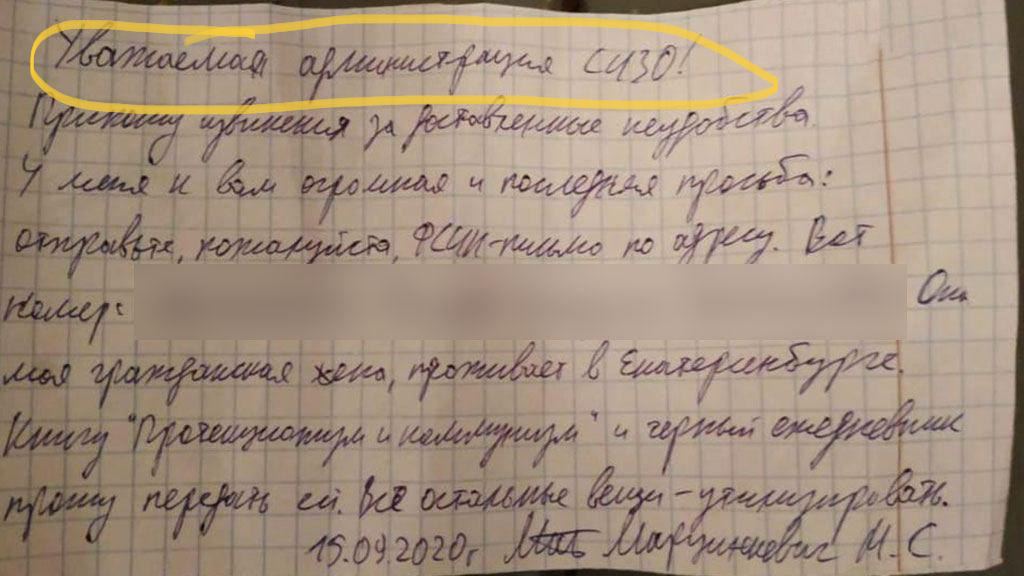 Уважаемая администрация СИЗО!
Приношу извинения за доставленные неудобства.
У меня к вам огромная и последняя просьба:
отправьте, пожалуйста, ФСИН-письмо по адресу. Вот
номер: Она
моя гражданская жена, проживает в Екатеринбурге.
Книгу "Протекционизм и коммунизм" и черный ежедневник
прошу передать ей. Все остальные вещи - утилизировать.
15.09.2020г Марцинкевич М.С.